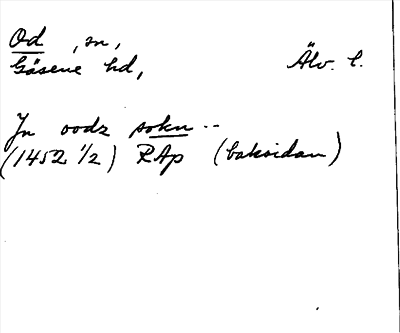 Od , sn,
Gäsene hd, Älv. l.
Jn oodz sokn --
(1452 1/2) RAp (baksidan)